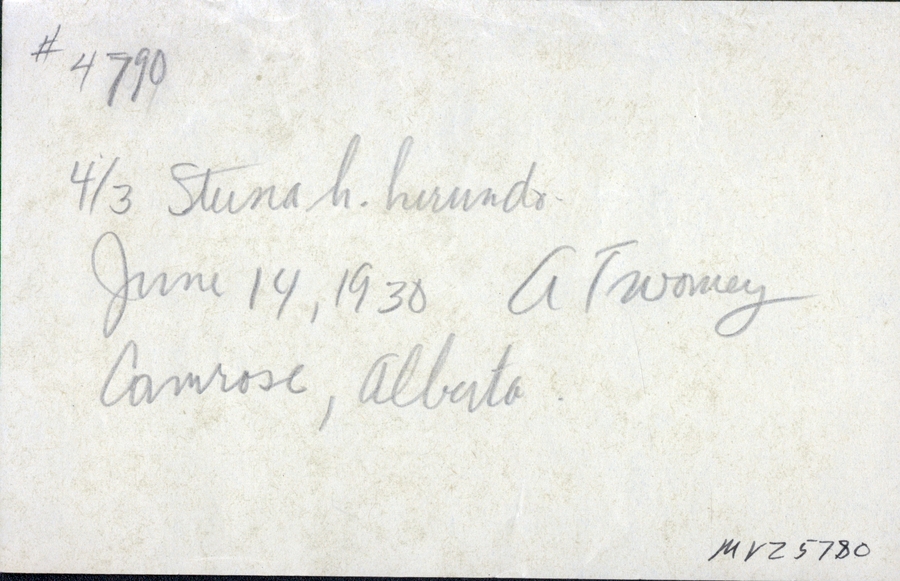 # 4790
4/3 Sterna h. hirundo.
June 14, 1930 A Twomey
Camrose, Alberta
MVZ 5780